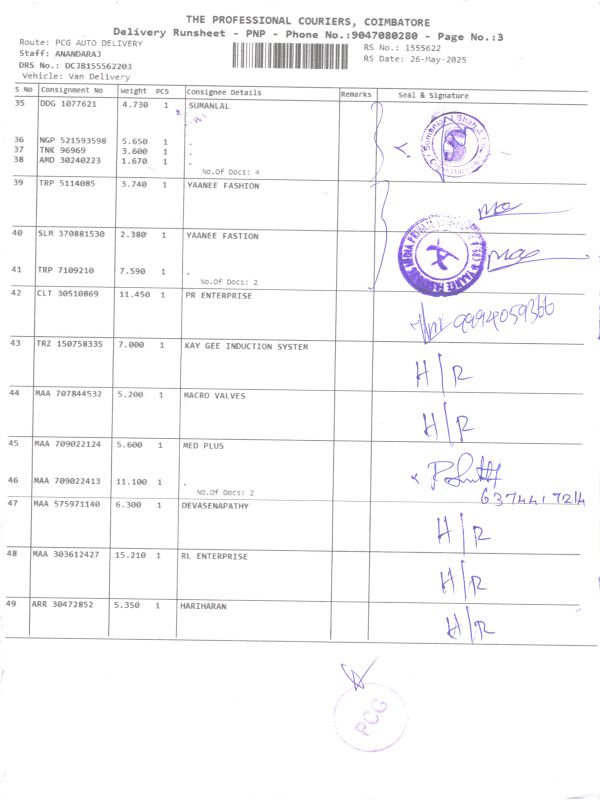 THE PROFESSIONAL COURIERS, COIMBATORE
Delivery Runsheet - PNP - Phone No.:9047080280 - Page No.:3
Route: PCG AUTO DELIVERY
Staff: ANANDARAJ
DRS No.: DCJB155562203
Vehicle: Van Delivery
RS No.: 1555622
RS Date: 26-May-2025
S No Consignment No Weight PCS Consignee Details Remarks Seal & Signature
35 DDG 1077621 4.730 1 SUMANLAL
36 NGP 521593598 5.650 1 .
37 TNK 96969 3.600 1 .
38 AMD 30240223 1.670 1 .
No.Of Docs: 4
39 TRP 5114085 3.740 1 YAANEE FASHION
40 SLM 370881530 2.380 1 YAANEE FASTION
41 TRP 7109210 7.590 1 .
No.Of Docs: 2
42 CLT 30510869 11.450 1 PR ENTERPRISE
9994059366
43 TRZ 150758335 7.000 1 KAY GEE INDUCTION SYSTEM
H/R
44 MAA 707844532 5.200 1 MACRO VALVES
H/R
45 MAA 709022124 5.600 1 MED PLUS
46 MAA 709022413 11.100 1 .
No.Of Docs: 2
6374417214
47 MAA 575971140 6.300 1 DEVASENAPATHY
H/R
48 MAA 303612427 15.210 1 RL ENTERPRISE
H/R
49 ARR 30472852 5.350 1 HARIHARAN
H/R
PCG